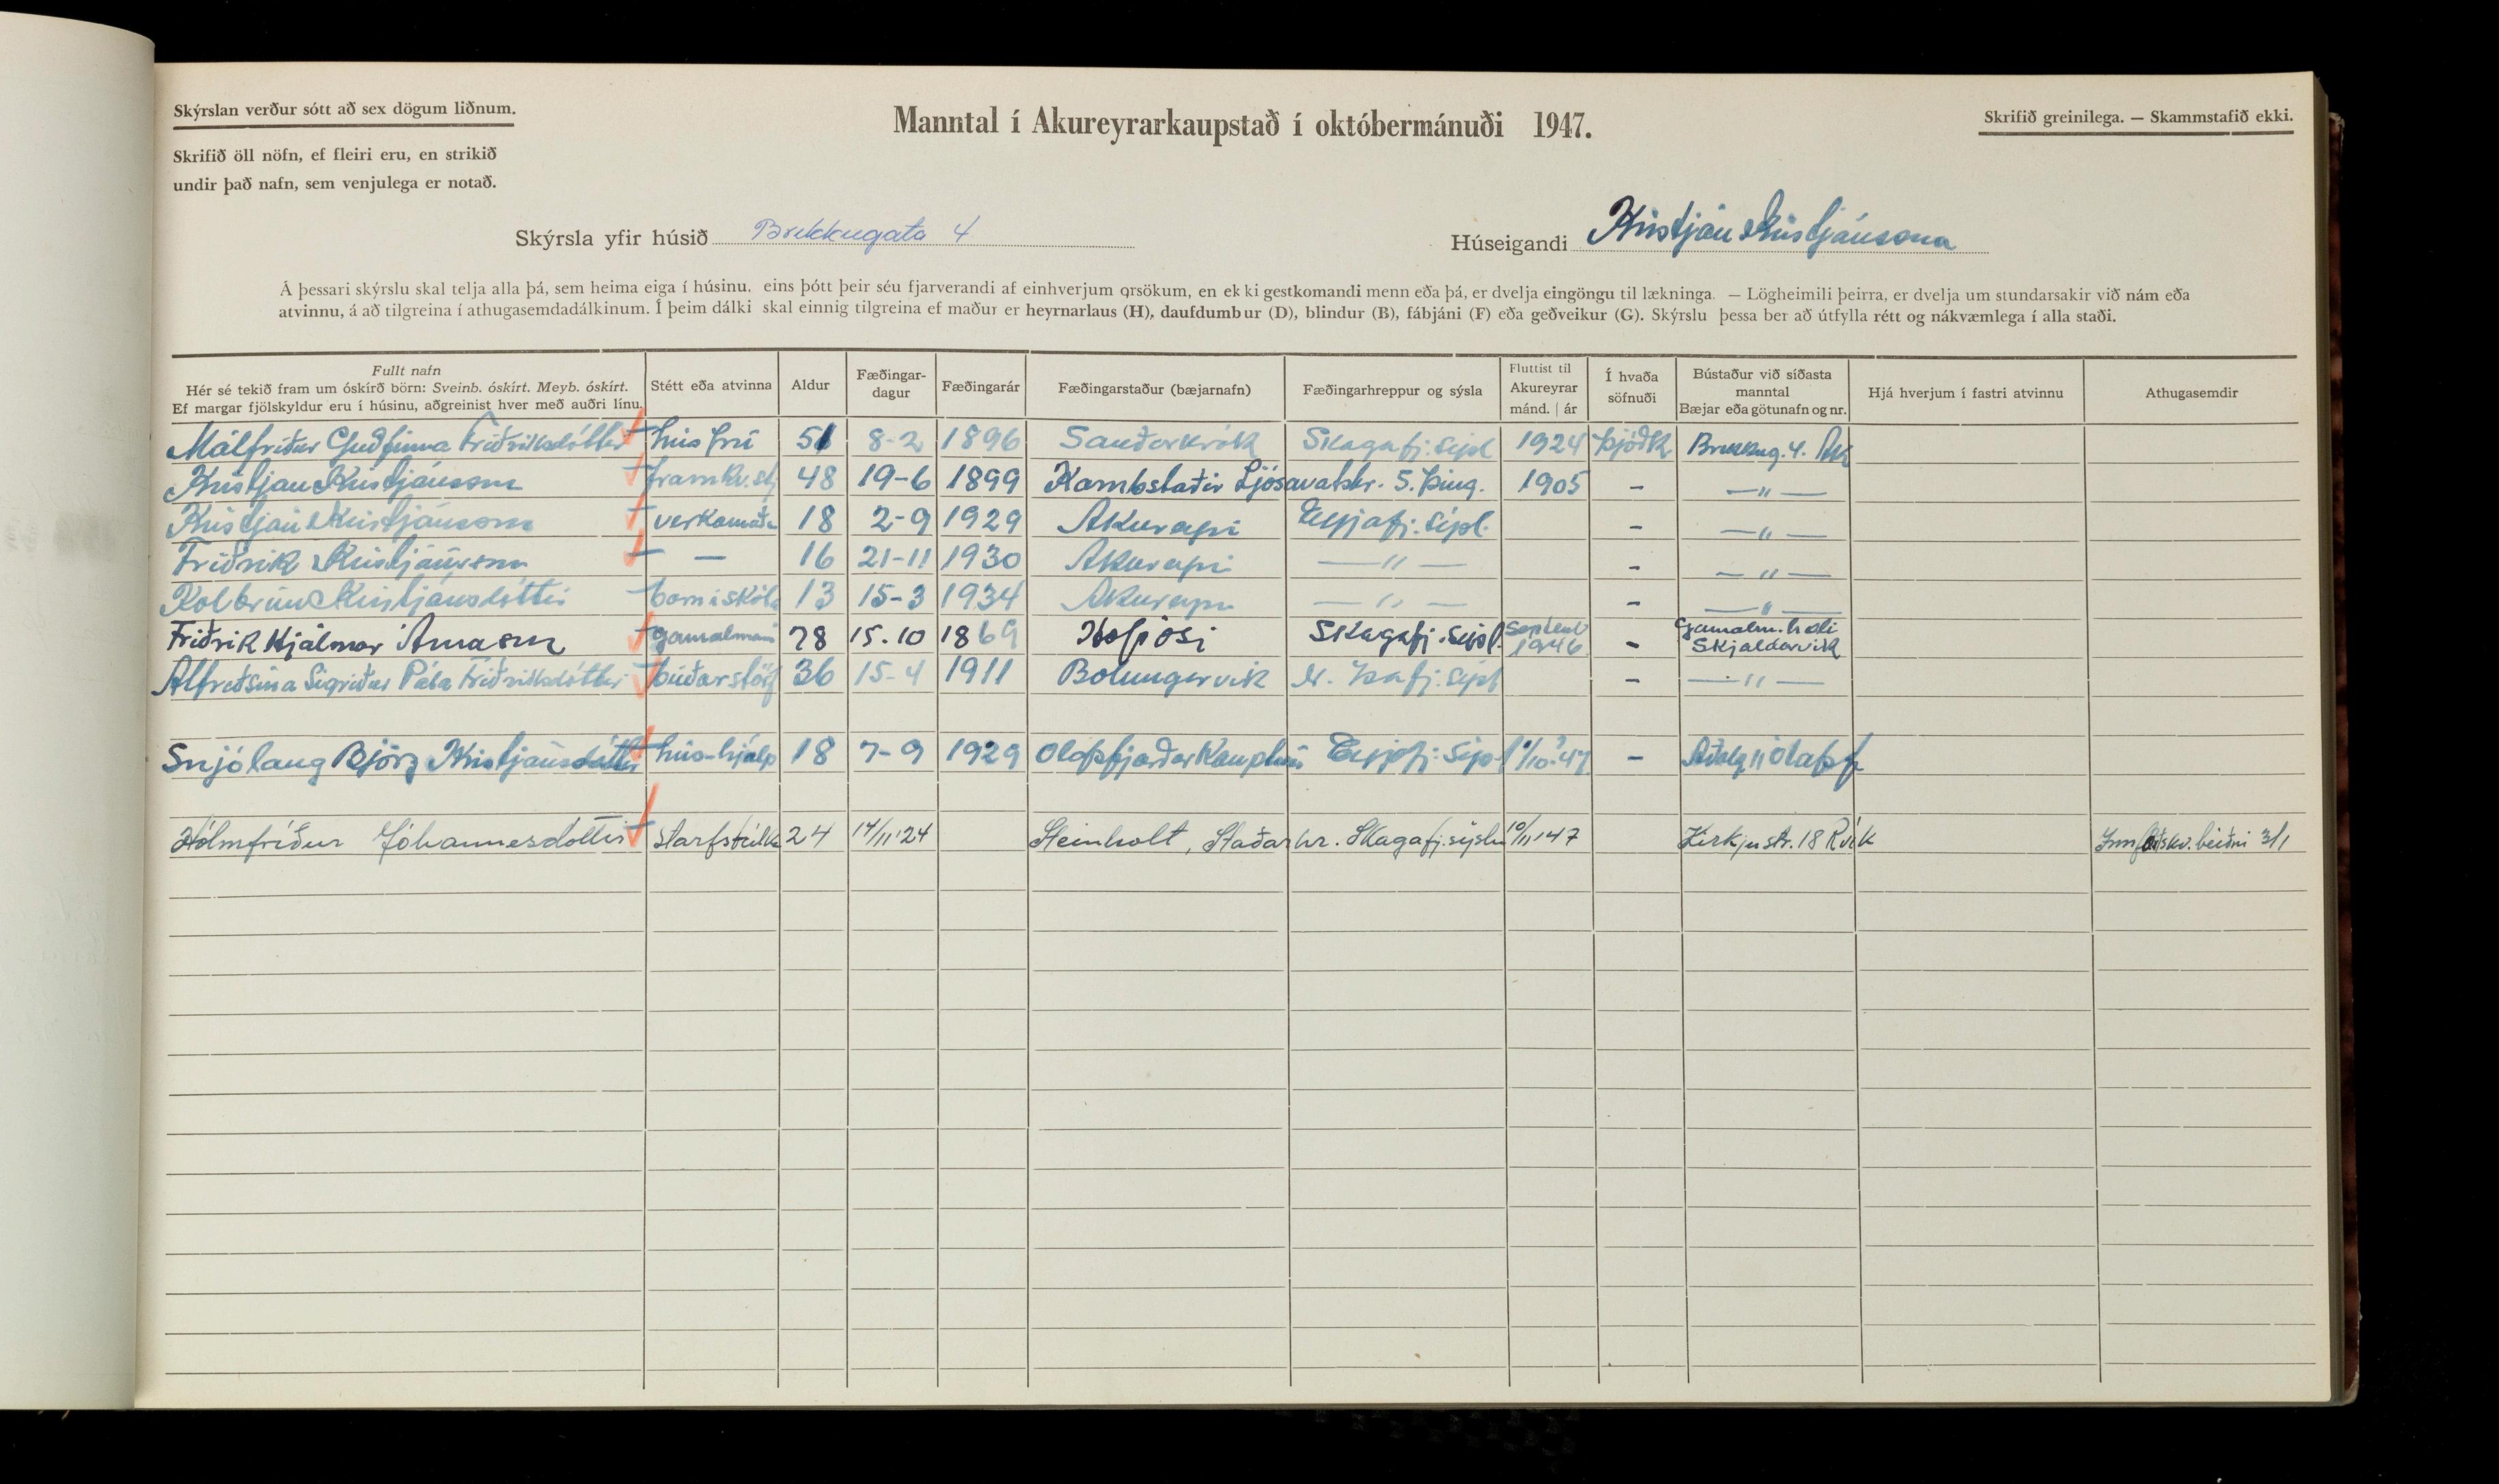 Skýrslan verður sótt að sex dögum liðnum.
Manntal í Akureyrarkaupstað í októbermánuði 1947.
Skrifið greinilega. — Skammstafið ekki.
Skrifið öll nöfn, ef fleiri eru, en strikið
undir það nafn, sem venjulega er notað.
Skýrsla yfir húsið Brekkugata 4
Húseigandi Kristján Kristjánsson
Á þessari skýrslu skal telja alla þá, sem heima eiga í húsinu, eins þótt þeir séu fjarverandi af einhverjum orsökum, en ekki gestkomandi menn eða þá, er dvelja eingöngu til lækninga. — Lögheimili þeirra, er dvelja um stundarsakir við nám eða
atvinnu, á að tilgreina í athugasemdadálkinum. Í þeim dálki skal einnig tilgreina ef maður er heyrnarlaus (H), daufdumbur (D), blindur (B), fábjáni (F) eða geðveikur (G). Skýrslu þessa ber að útfylla rétt og nákvæmlega í alla staði.
Fullt nafn
Hér sé tekið fram um óskírð börn: Sveinb. óskírt. Meyb. óskírt.
Ef margar fjölskyldur eru í húsinu, aðgreinist hver með auðri línu.
Stétt eða atvinna
Aldur
Fæðingar-
dagur
Fæðingarár
Fæðingarstaður (bæjarnafn)
Fæðingarhreppur og sýsla
Fluttist til
Akureyrar
mánd. | ár
Í hvaða
söfnuði
Bústaður við síðasta
manntal
Bæjar eða götunafn og nr.
Hjá hverjum í fastri atvinnu
Athugasemdir
Málfríður Guðfinna Friðriksdóttir húsfrú 51 8-2 1896 Sauðárkrók Skagafj.sýsl 1924 Þjóðk Brekkug. 4. Ak
Kristján Kristjánsson framkv.stj 48 19-6 1899 Kambstaðir Ljósavatshr. S. Þing. 1905 - —"—
Kristján Kristjánsson verkamað 18 2-9 1929 Akureyri Eyjafj. sýsl. - —"—
Friðrik Kristjánsson — 16 21-11 1930 Akureyri —"— - —"—
Kolbrún Kristjánsdóttir barniskóla 13 15-3 1934 Akureyri —"— - —"—
Friðrik Hjálmar Árnason gamalmenni 78 15.10 1869 Hofsósi Skagafj.sýsl. Septemb 1946 - Gamalm.hæli Skjaldarvik
Alfreðsína Sigríður Pála Friðriksdóttir búðarstörf 36 15-4 1911 Bolungarvik N. Ísafj.sýsl - —"—
Snjólaug Björg Kristjánsdóttir hús-hjálp 18 7-9 1929 Olafsfjarðarkauptún Eyjafj.sýsl 1/10-47 - Aðalg 11 Ólafsf
Hólmfríður Jóhannesdóttir Starfstúlka 24 14/11'24 Steinholt, Staðarhr. Skagafj.sýslu 10/11'47 Kirkjustr. 18 Rvík beiðni 3/1